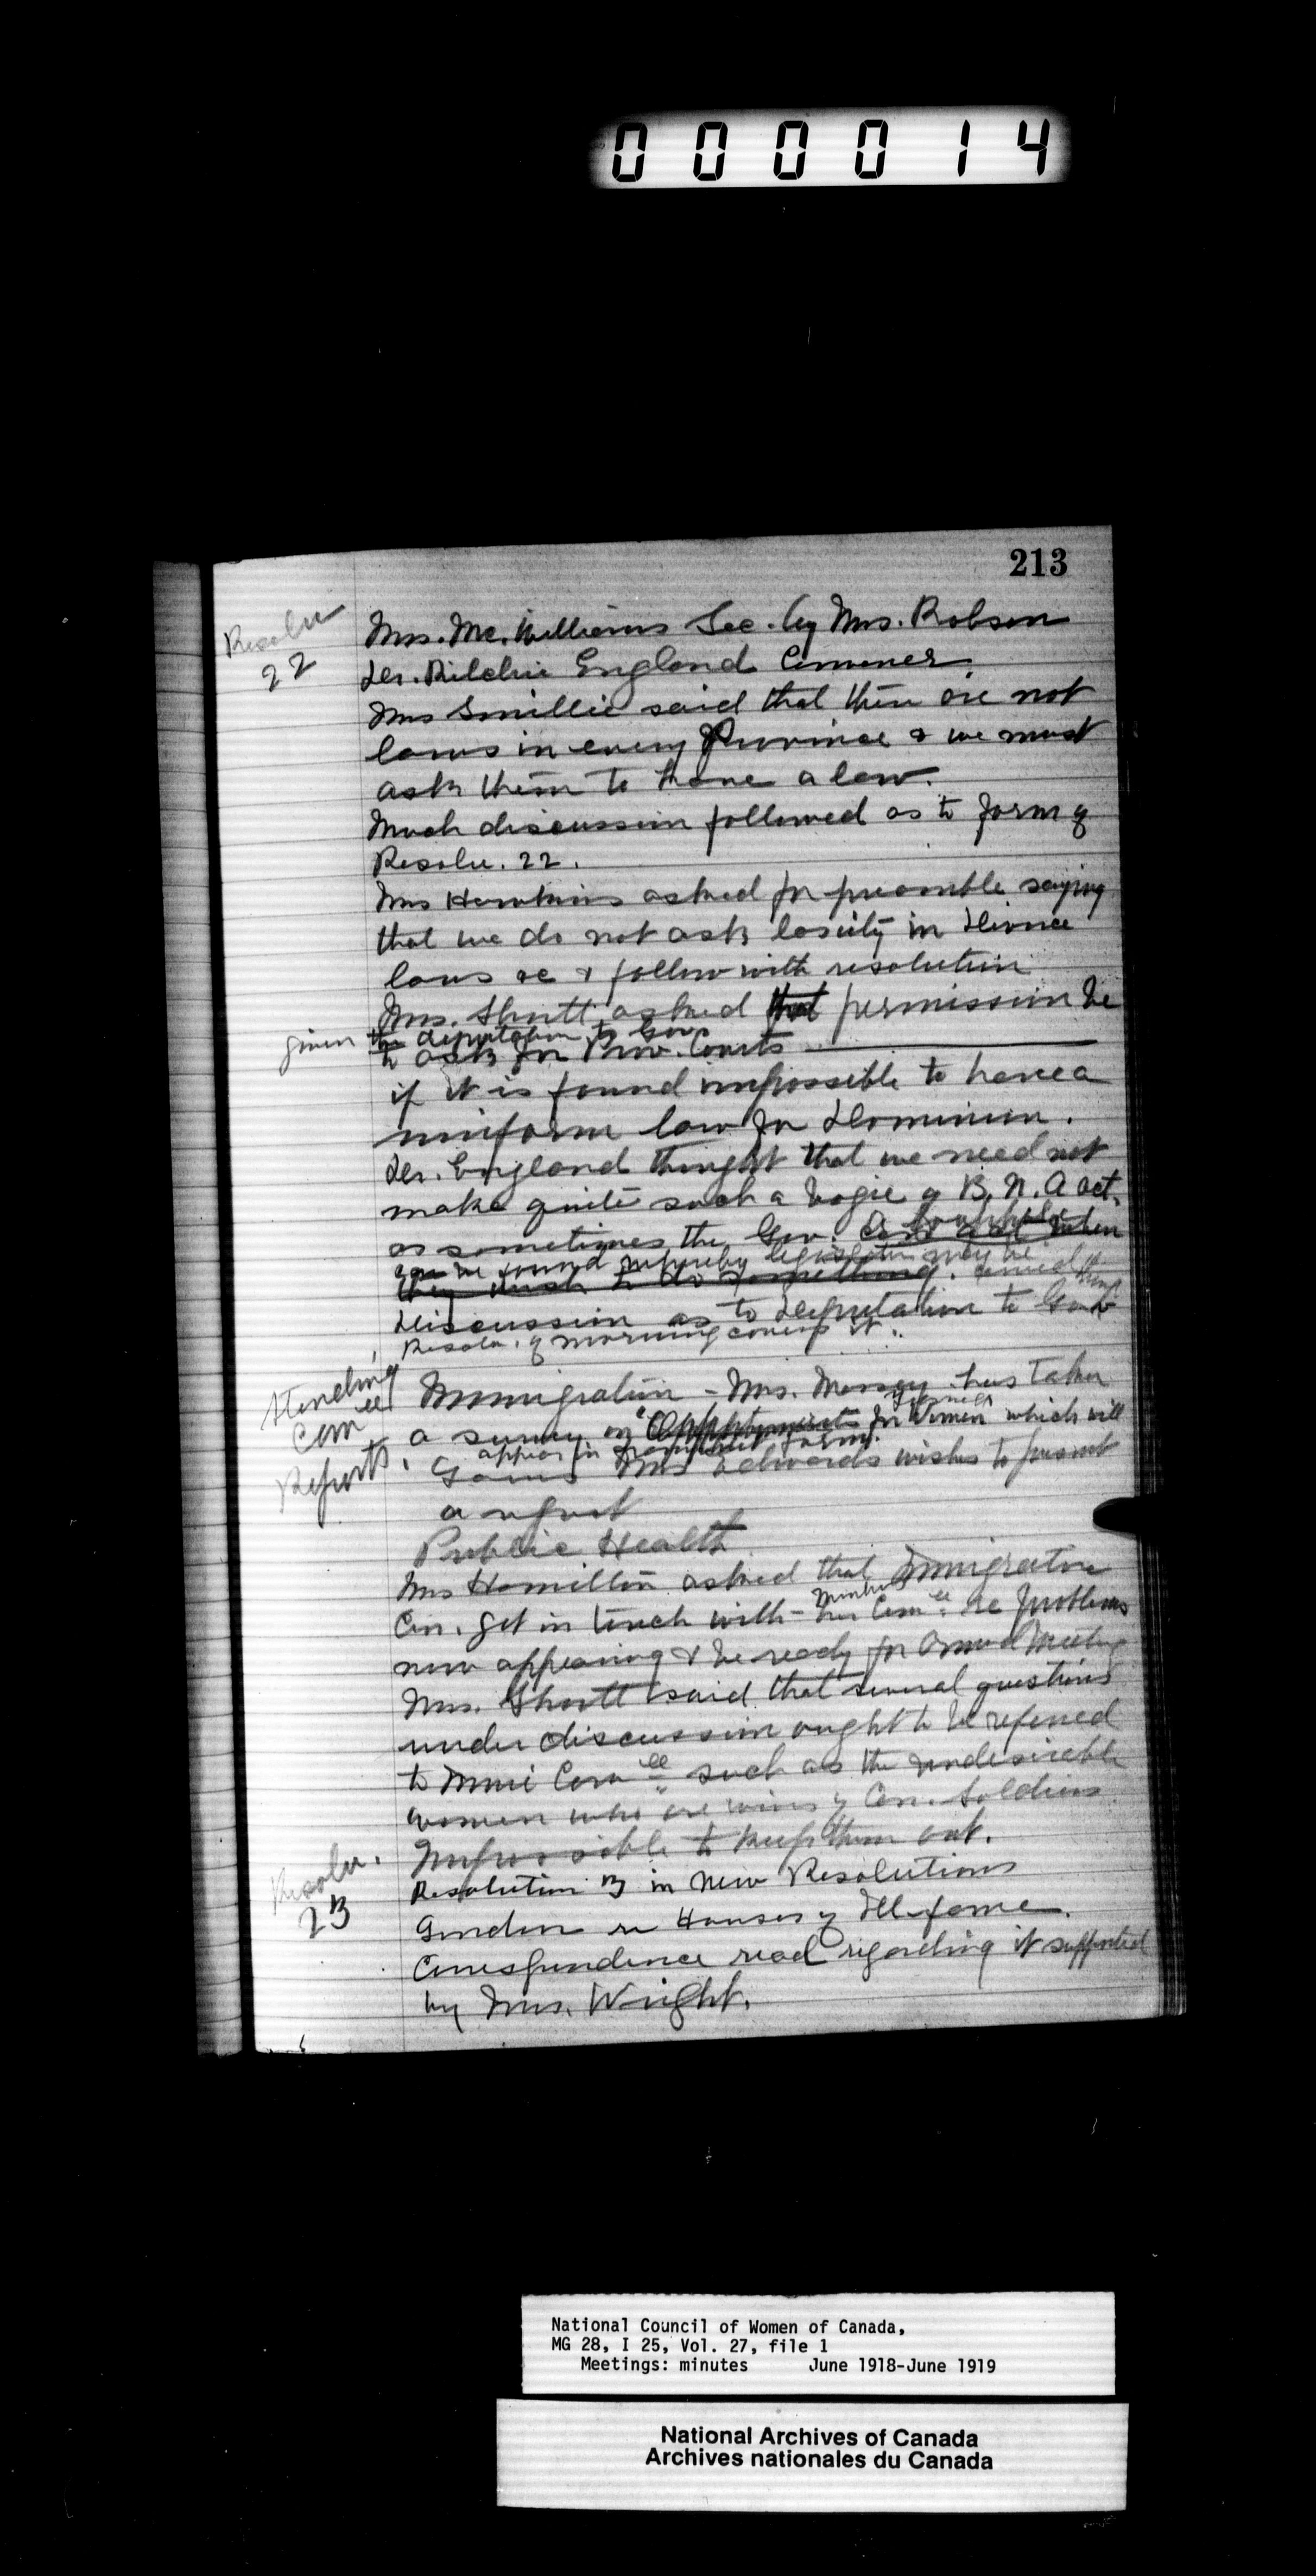 000014
213
Resolu
22
Mrs. Mc.Williams Sec. by Mrs. Robson
Dr. Ritchie England Convener
Mrs Smillie said that there are not
laws in every Province & we must
ask them to have a law.
Much discussion followed as to form of
Resolu. 22.
Mrs Hawkins asked for preamble saying
that we do not ask laxity in Divorce
laws &c & follow with resolution
Mrs. Shortt asked that permission be
given the deputation to Gov.
to ask for Prov. Courts
if it is found impossible to have a
uniform law for Dominion.
Dr. England thought that we need not
make quite such a bogie of B.N.A act.
as sometimes the Gov. a loophole
be found whereby legislation may be
they wish to do something. carried thro
Discussion as to Deputation to Gov't
Resolu. of morning covers it.
Standing
Com ee
Reports.
Immigration - Mrs. Massey has taken
a survey of "Opportunities for Women which will
appear in form.
Mrs Edwards wishes to present
a report
Public Health
Mrs Hamilton asked that Immigration
Con. get in touch with - her Com ee re problems
now appearing & be ready for Annual Meeting
Mrs. Shortt said that several questions
under discussion ought to be referred
to Com ee such as the undesirable
women who are wives of Can. Soldiers
Impossible to keep them out.
Resolu.
23
Resolution 3 in New Resolutions
re Houses of Ill-fame.
Correspondence read regarding it supported
by Mrs. Wright.
National Council of Women of Canada,
MG 28, I 25, Vol. 27, file 1
Meetings: minutes June 1918-June 1919
National Archives of Canada
Archives nationales du Canada